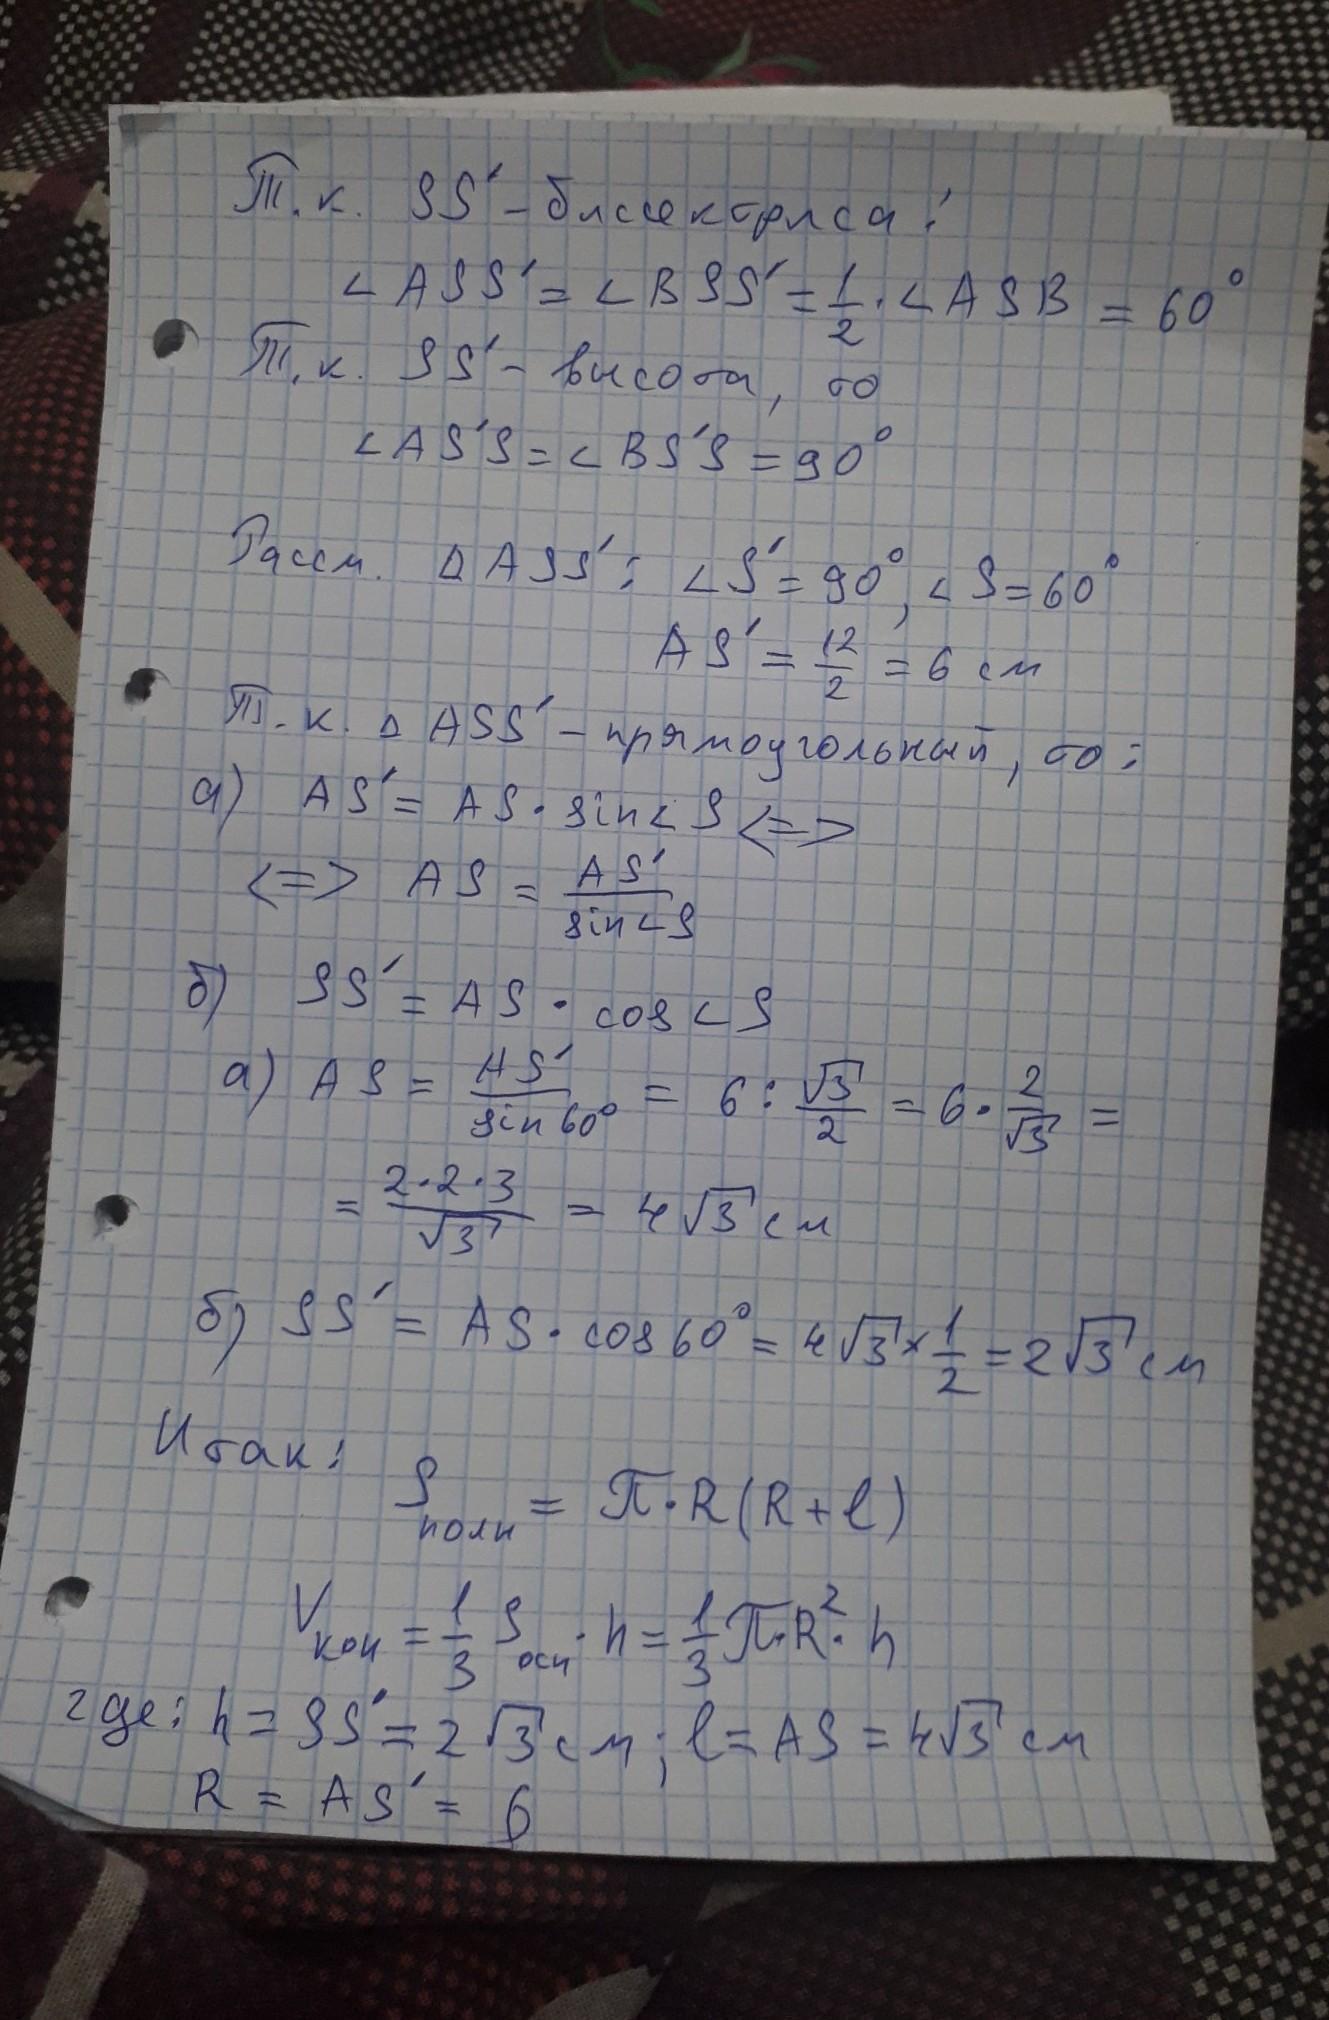 Т.к. SS' - биссектриса:
∠ASS' = ∠BSS' = 1/2 · ∠ASB = 60°
Т.к. SS' - высота, то
∠AS'S = ∠BS'S = 90°
Рассм. ΔASS': ∠S' = 90°, ∠S = 60°
AS' = 12/2 = 6 см
Т.к. ΔASS' - прямоугольный, то:
а) AS' = AS · sin∠S <=>
<=> AS = AS'/sin∠S
б) SS' = AS · cos∠S
а) AS = AS'/sin60° = 6 : √3/2 = 6 · 2/√3 =
= 2·2·3/√3 = 4√3 см
б) SS' = AS · cos60° = 4√3 × 1/2 = 2√3 см
Итак:
Sполн = π·R(R+l)
Vкон = 1/3 Sосн · h = 1/3 π·R²·h
где: h = SS' = 2√3 см; l = AS = 4√3 см
R = AS' = 6